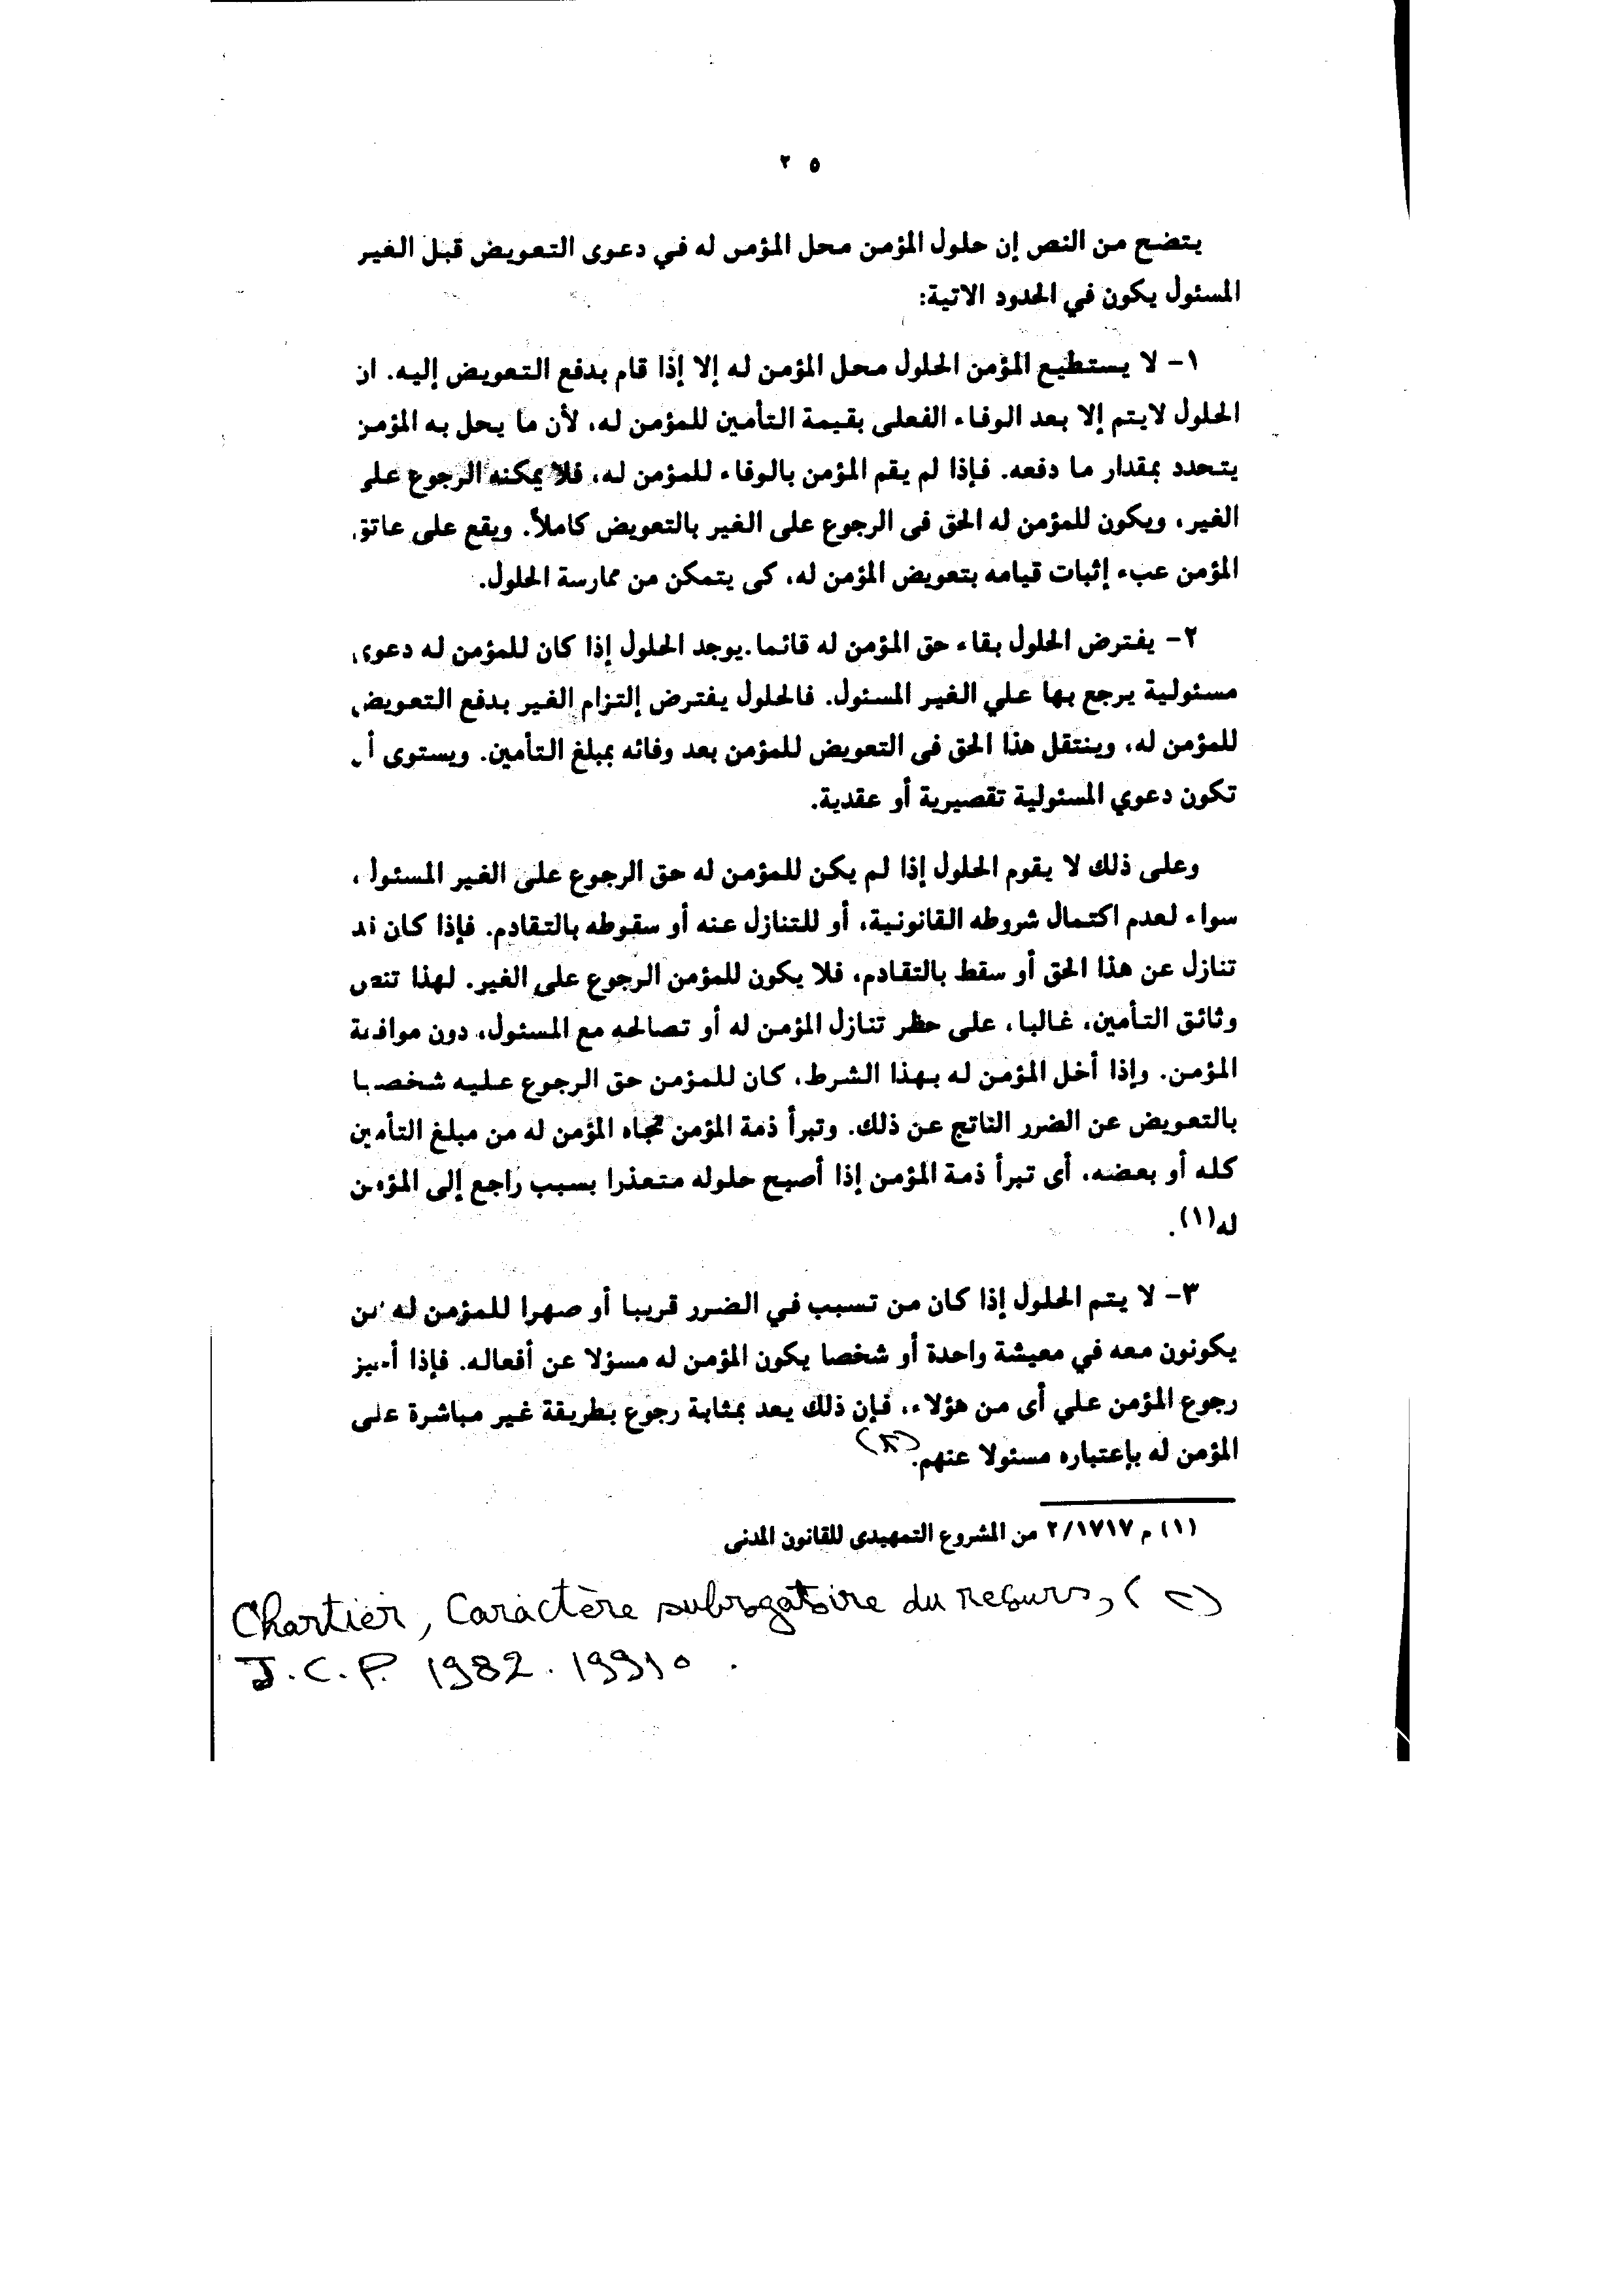 ٢٥
يتضح من النص إن حلول المؤمن محل المؤمن له في دعوى التعويض قبل الغير
المسئول يكون في الحدود الاتية:
١- لا يستطيع المؤمن الحلول محل المؤمن له إلا إذا قام بدفع التعويض إليه. ان
الحلول لايتم إلا بعد الوفاء الفعلى بقيمة التأمين للمؤمن له، لأن ما يحل به المؤمن
يتحدد بمقدار ما دفعه. فإذا لم يقم المؤمن بالوفاء للمؤمن له، فلا يمكنه الرجوع على
الغير، ويكون للمؤمن له الحق فى الرجوع على الغير بالتعويض كاملاً. ويقع على عاتق
المؤمن عبء إثبات قيامه بتعويض المؤمن له، كى يتمكن من ممارسة الحلول.
٢- يفترض الحلول بقاء حق المؤمن له قائما.يوجد الحلول إذا كان للمؤمن له دعوى
مسئولية يرجع بها علي الغير المسئول. فالحلول يفترض إلتزام الغير بدفع التعويض
للمؤمن له، وينتقل هذا الحق فى التعويض للمؤمن بعد وفائه بمبلغ التأمين. ويستوى أن
تكون دعوي المسئولية تقصيرية أو عقدية.
وعلى ذلك لا يقوم الحلول إذا لم يكن للمؤمن له حق الرجوع على الغير المسئول،
سواء لعدم اكتمال شروطه القانونية، أو للتنازل عنه أو سقوطه بالتقادم. فإذا كان قد
تنازل عن هذا الحق أو سقط بالتقادم، فلا يكون للمؤمن الرجوع على الغير. لهذا تنص
وثائق التأمين، غالبا، على حظر تنازل المؤمن له أو تصالحه مع المسئول، دون موافقة
المؤمن. وإذا أخل المؤمن له بهذا الشرط، كان للمؤمن حق الرجوع عليه شخصيا
بالتعويض عن الضرر الناتج عن ذلك. وتبرأ ذمة المؤمن تجاه المؤمن له من مبلغ التأمين
كله أو بعضه، أى تبرأ ذمة المؤمن إذا أصبح حلوله متعذرا بسبب راجع إلى المؤمن
له(١).
٣- لا يتم الحلول إذا كان من تسبب في الضرر قريبا أو صهرا للمؤمن له ممن
يكونون معه في معيشة واحدة أو شخصا يكون المؤمن له مسؤلا عن أفعاله. فإذا أجيز
رجوع المؤمن علي أى من هؤلاء، فإن ذلك يعد بمثابة رجوع بطريقة غير مباشرة على
المؤمن له بإعتباره مسئولا عنهم.(٢)
(١) م ٢/١٧١٧ من المشروع التمهيدى للقانون المدنى
Chartier, Caractère subrogatoire du recours, (٢)
J.C.P. 1982. 19910.